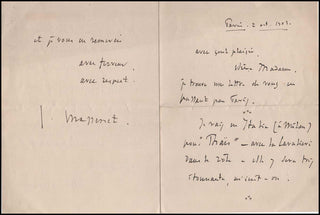 Paris. 2 oct. 1903.
avec quel plaisir,
chère Madame,
je trouve une lettre de vous en
passant par Paris.
Je vais en Italie (à Milan)
pour "Thaïs" – avec la Cavalieri
dans le rôle – elle y sera très
étonnante, m'écrit-on.
et je vous en remercie
avec ferveur
avec respect.
J. Massenet.